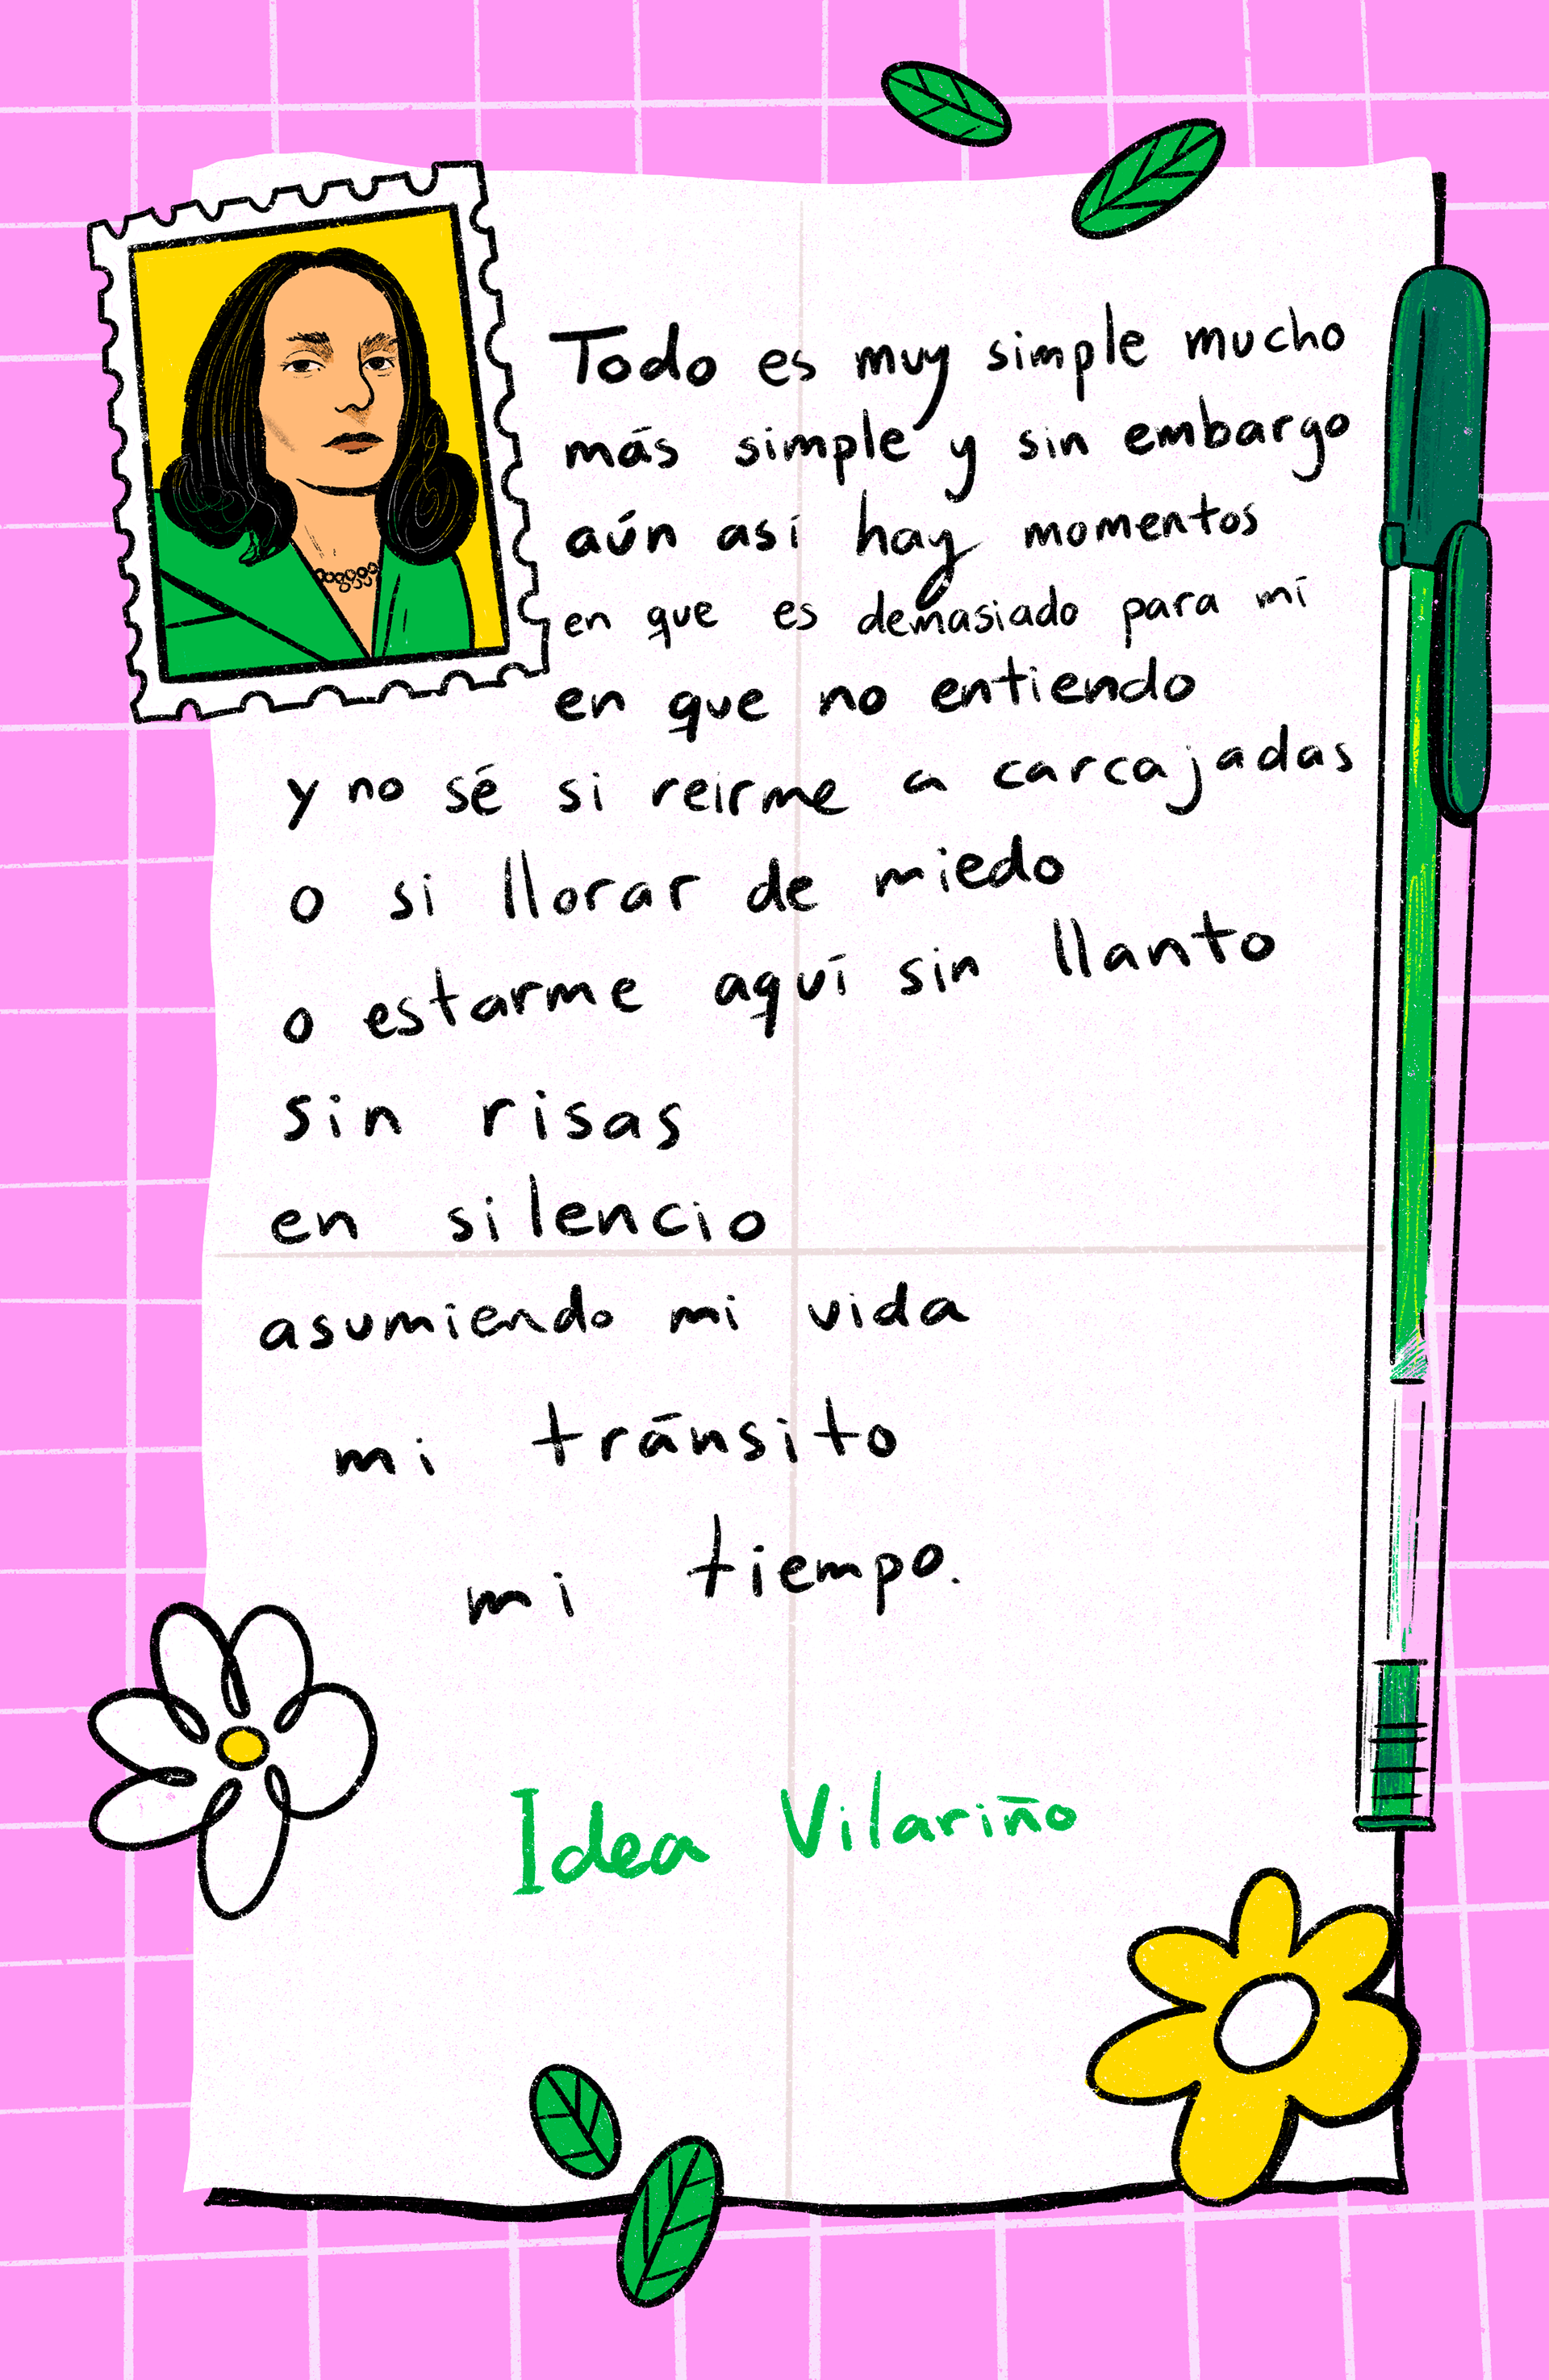 Todo es muy simple mucho
más simple y sin embargo
aún así hay momentos
en que es demasiado para mí
en que no entiendo
y no sé si reirme a carcajadas
o si llorar de miedo
o estarme aquí sin llanto
sin risas
en silencio
asumiendo mi vida
mi tránsito
mi tiempo.
Idea Vilariño